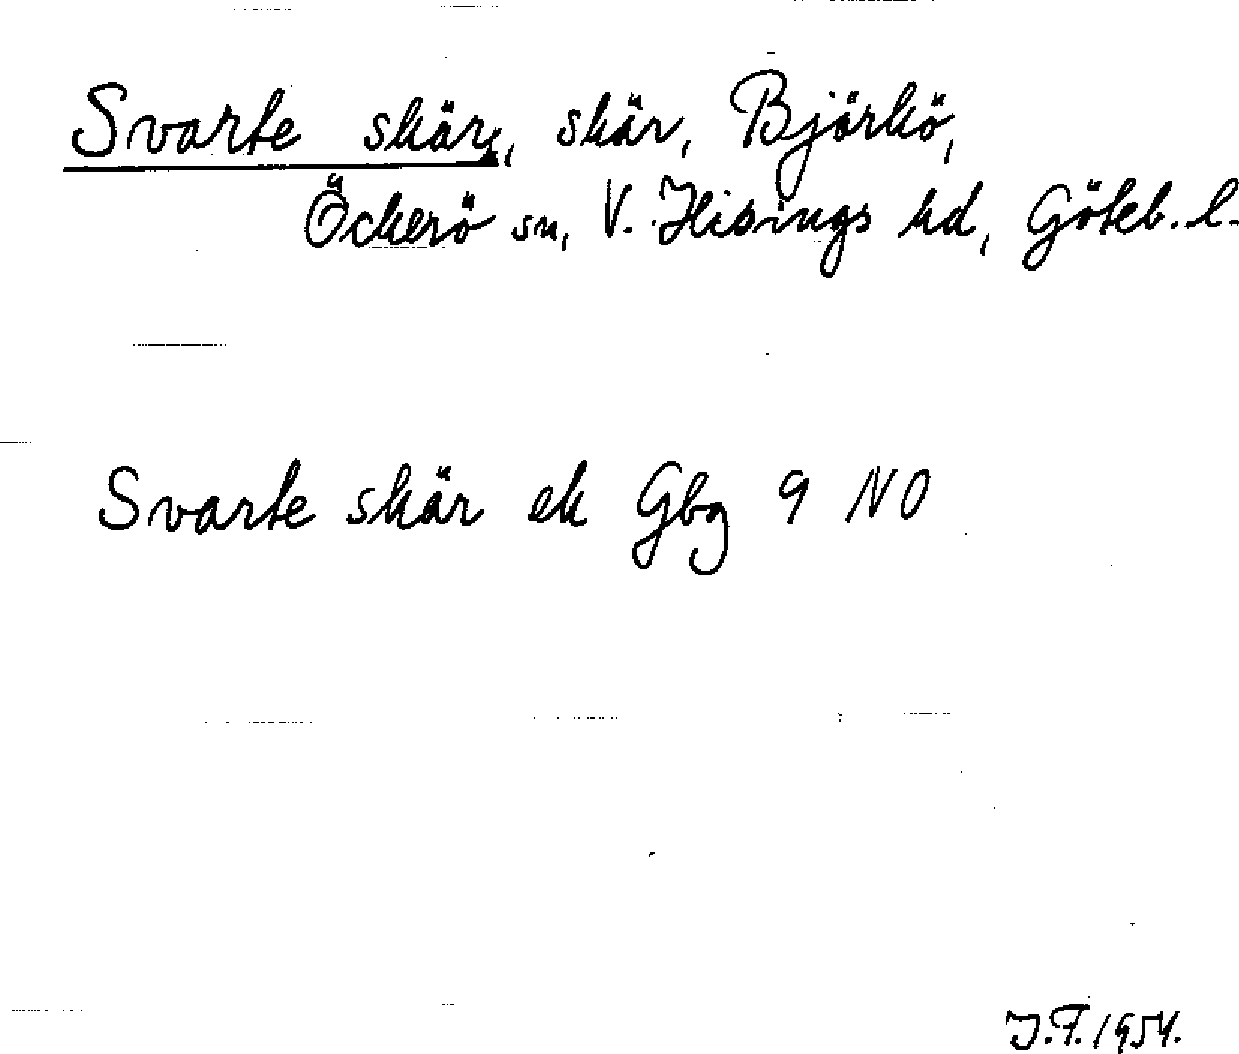 Svarte skär, skär, Björkö,
Öckerö sn, V. Hisings hd, Göteb. l.
Svarte skär ek Gbg 9 NO
J.F. 1954.